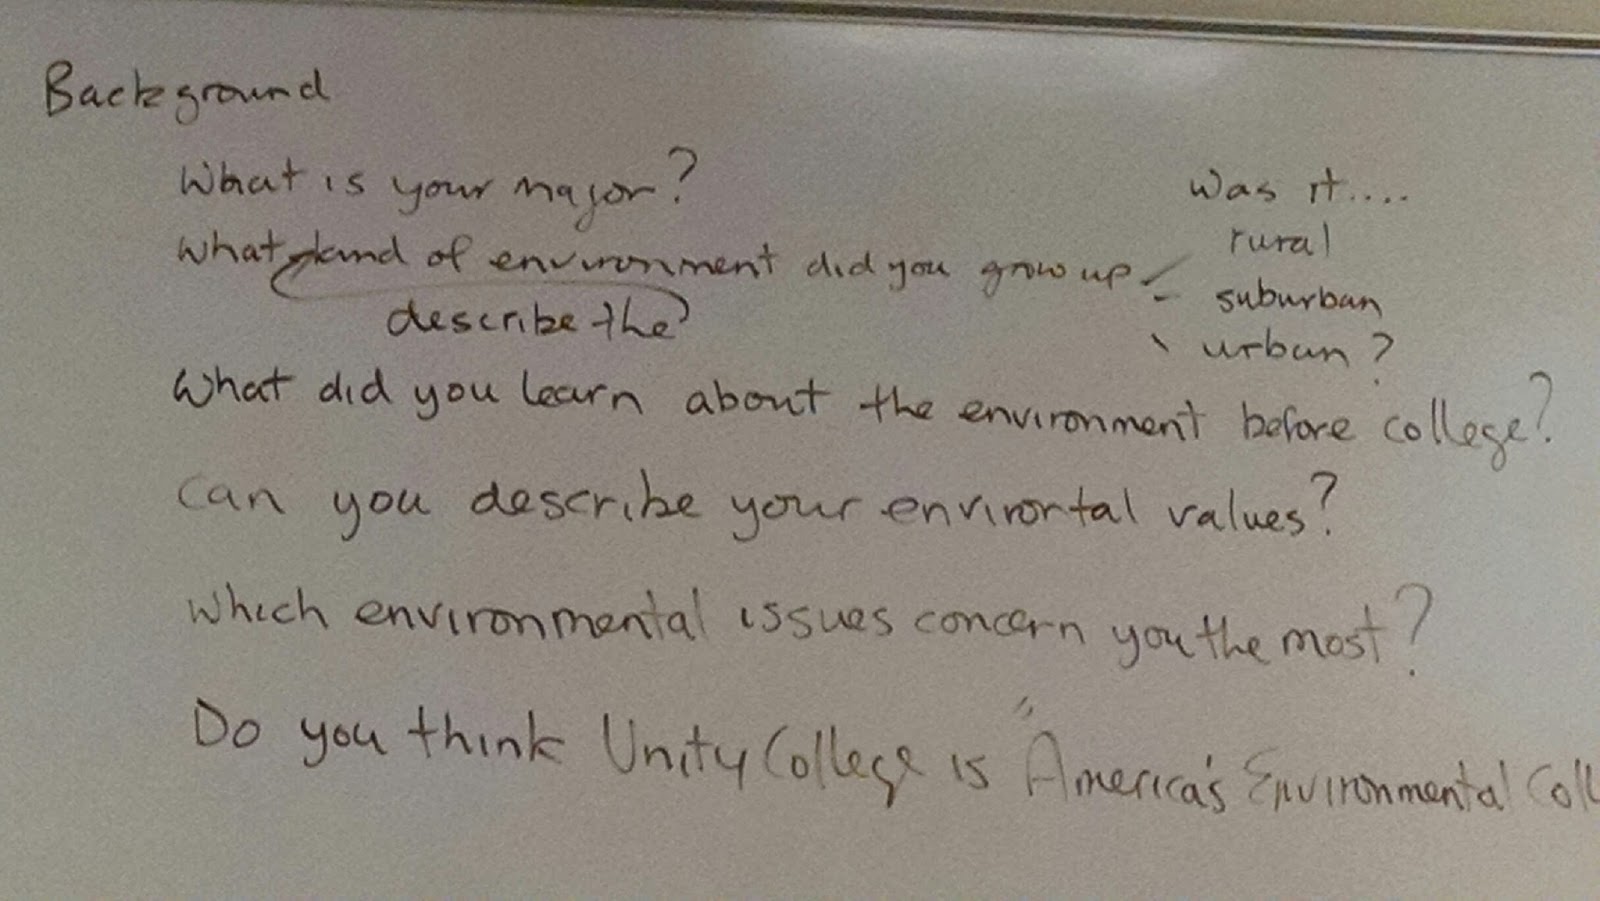 Background
What is your major?
What kind of environment did you grow up
describe the
Was it....
rural
suburban
urban?
What did you learn about the environment before college?
Can you describe your environtal values?
Which environmental issues concern you the most?
Do you think Unity College is "America's Environmental Coll